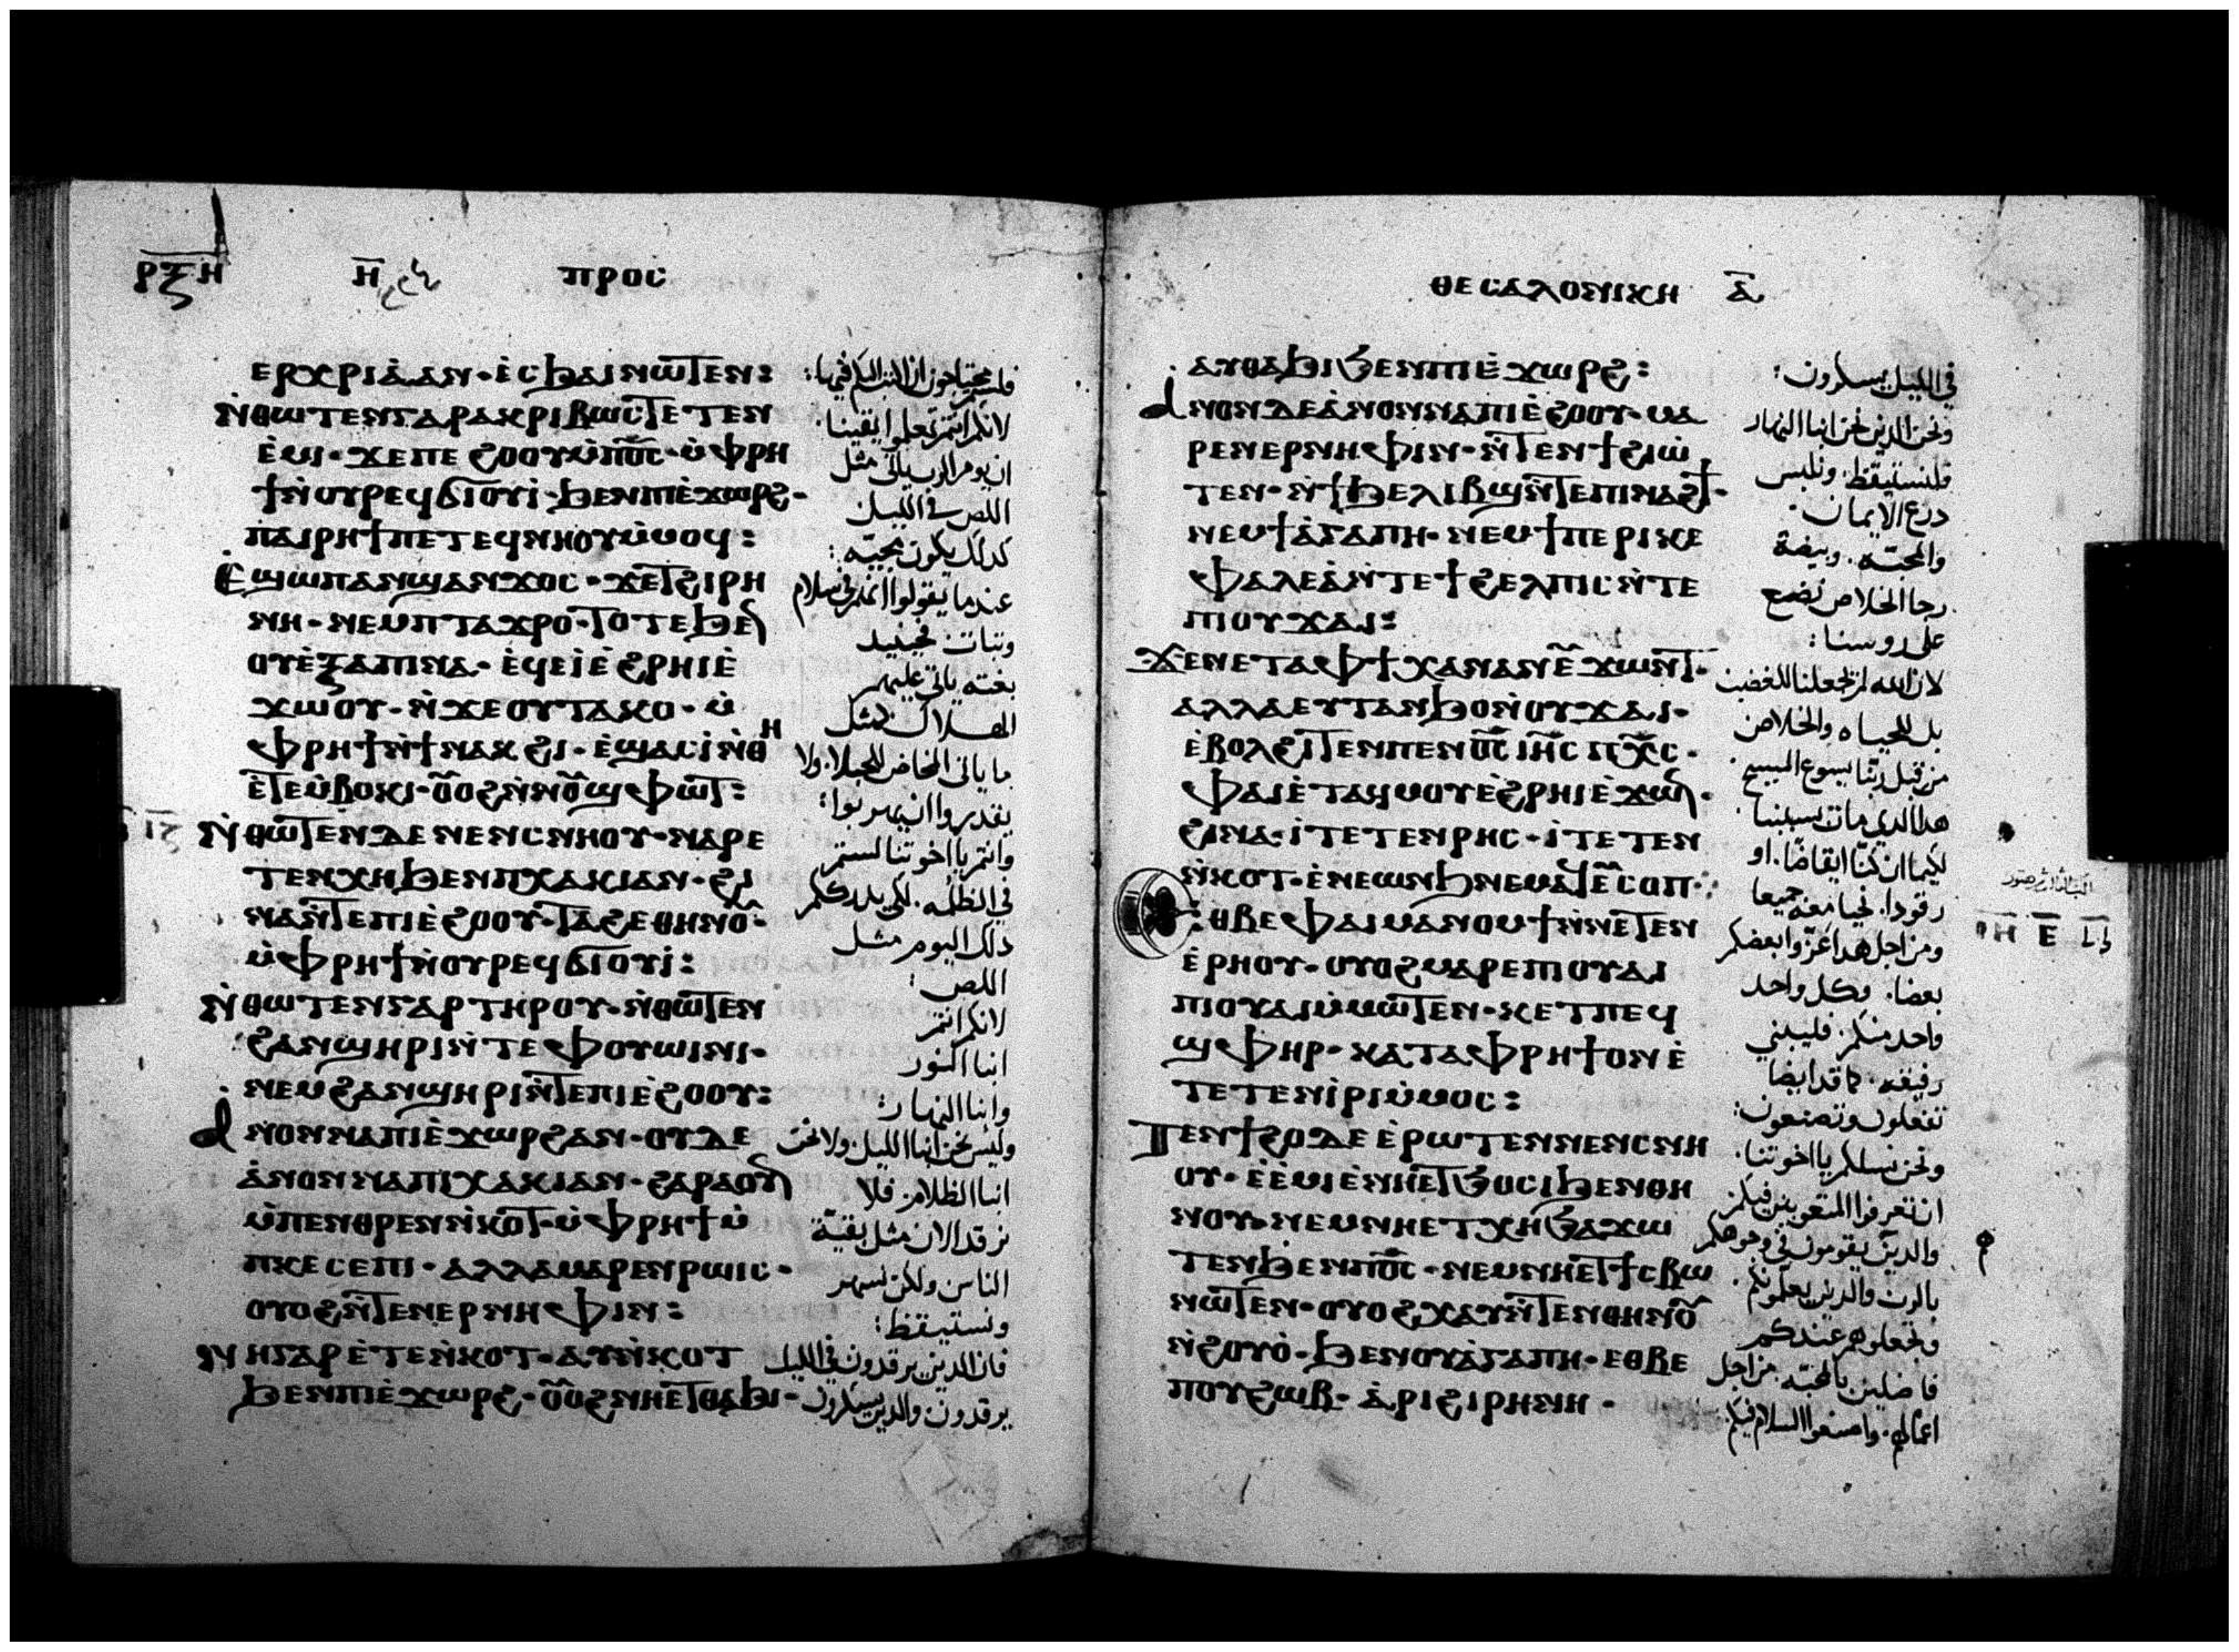 ⲣⲝⲏ ⲏ ⲡⲣⲟⲥ
ⲉⲣⲭⲣⲓⲁ̀ⲁⲛ · ⲉ̀ⲥϧⲁⲓⲛⲱⲧⲉⲛ :
ⲛ̀ⲑⲱⲧⲉⲛⲅⲁⲣⲁⲕⲣⲓⲃⲱⲥⲧⲉⲧⲉⲛ
ⲉ̀ⲙⲓ · ϫⲉⲡⲉϩⲟⲟⲩⲙ̀ⲡⲟ̅ⲥ̅ · ⲙ̀ⲫⲣⲏ
ϯⲛ̀ⲟⲩⲣⲉϥϭⲓⲟⲩⲓ̀ · ϧⲉⲛⲡⲓⲉ̀ϫⲱⲣϩ ·
ⲡⲁⲓⲣⲏϯⲡⲉⲧⲉϥⲛⲏⲟⲩⲙ̀ⲙⲟϥ :
ⲉϣⲱⲡⲁⲛϣⲁⲛϫⲟⲥ · ϫⲉⲧϩⲓⲣⲏ
ⲛⲏ · ⲛⲉⲙⲡⲧⲁϫⲣⲟ · ⲧⲟⲧⲉϧⲉⲛ
ⲟⲩⲉ̀ⲝⲁⲡⲓⲛⲁ · ⲉ̀ϥⲉⲓ̀ⲉ̀ϩⲣⲏⲓⲉ̀
ϫⲱⲟⲩ · ⲛ̀ϫⲉⲟⲩⲧⲁⲕⲟ · ⲙ̀
ⲫⲣⲏϯⲛ̀ϯⲛⲁⲕϩⲓ · ⲉ̀ϣⲁⲥⲓ̀ⲛ̀ⲑⲏ
ⲉ̀ⲧⲉⲙ̀ⲃⲟⲕⲓ · ⲟⲩⲟϩⲛ̀ⲛⲟⲩϣⲫⲱⲧ :
ⲛ̀ⲑⲱⲧⲉⲛⲇⲉⲛⲉⲛⲥⲛⲏⲟⲩ · ⲛⲁⲣⲉ
ⲧⲉⲛⲭⲏϧⲉⲛⲡⲭⲁⲕⲓⲁⲛ · ϩⲓ
ⲛⲁⲛ̀ⲧⲉⲡⲓⲉ̀ϩⲟⲟⲩ · ⲧⲁϩⲉⲑⲏⲛⲟⲩ ·
ⲙ̀ⲫⲣⲏϯⲛ̀ⲟⲩⲣⲉϥϭⲓⲟⲩⲓ̀ :
ⲛ̀ⲑⲱⲧⲉⲛⲅⲁⲣⲧⲏⲣⲟⲩ · ⲛ̀ⲑⲱⲧⲉⲛ
ϩⲁⲛϣⲏⲣⲓⲛ̀ⲧⲉⲫⲟⲩⲱⲓⲛⲓ ·
ⲛⲉⲙϩⲁⲛϣⲏⲣⲓⲛ̀ⲧⲉⲡⲓⲉ̀ϩⲟⲟⲩ :
ⲁⲛⲟⲛⲛⲁⲡⲓⲉ̀ϫⲱⲣϩⲁⲛ · ⲟⲩⲇⲉ
ⲁ̀ⲛⲟⲛⲛⲁⲡⲓⲭⲁⲕⲓⲁⲛ · ϩⲁⲣⲁⲟⲩⲛ
ⲙ̀ⲡⲉⲛⲑⲣⲉⲛⲛ̀ⲕⲟⲧ · ⲙ̀ⲫⲣⲏϯⲙ̀
ⲡⲕⲉⲥⲉⲡⲓ · ⲁⲗⲗⲁⲙⲁⲣⲉⲛⲣⲱⲓⲥ ·
ⲟⲩⲟϩⲛ̀ⲧⲉⲛⲉⲣⲛⲏⲫⲓⲛ :
ⲛⲏⲅⲁⲣⲉ̀ⲧⲉⲛ̀ⲕⲟⲧ · ⲁⲩⲛ̀ⲕⲟⲧ
ϧⲉⲛⲡⲓⲉ̀ϫⲱⲣϩ · ⲟⲩⲟϩⲛⲏⲉⲧⲑⲁϧⲓ ·
لانكم انتم تعلموا يقينا ·
ان يوم الرب ياتى مثل
اللص فى الليل
كذلك يكون مجيه :
عندما يقولوا
وتبات فحينيد
بغته ياتى عليهم
الهلاك مثل
ما ياتى المخاض للحبلا · ولا
يقدروا ان يهربوا :
وانتم يا اخوتنا لستم
فى الظلمه · لكى يدرككم
ذلك اليوم مثل
اللص :
لانكم انتم
ابنا النور
وابنا النهار :
وليس نحن ابنا الليل ولا نحن
ابنا الظلام · فلا
نرقد الان مثل بقيّة
الناس ولكن نسهر
ونستيقظ :
فان الدين يرقدون فى الليل
يرقدون والدين يسكرون
ⲑⲉⲥⲁⲗⲟⲛⲓⲕⲏ ⲁ̅
ⲁⲩⲑⲁϧⲓϧⲉⲛⲡⲓⲉ̀ϫⲱⲣϩ :
ⲁⲛⲟⲛⲇⲉⲁ̀ⲛⲟⲛⲛⲁⲡⲓⲉ̀ϩⲟⲟⲩ · ⲙⲁ
ⲣⲉⲛⲉⲣⲛⲏⲫⲓⲛ · ⲛ̀ⲧⲉⲛϯϩⲓⲱ
ⲧⲉⲛ · ⲛ̀ϯϧⲉⲗⲓⲃϣⲛ̀ⲧⲉⲡⲓⲛⲁϩϯ ·
ⲛⲉⲙϯⲁ̀ⲅⲁⲡⲏ · ⲛⲉⲙϯⲡⲉⲣⲓⲕⲉ
ⲫⲁⲗⲉⲁ̀ⲛ̀ⲧⲉϯϩⲉⲗⲡⲓⲥⲛ̀ⲧⲉ
ⲡⲓⲟⲩϫⲁⲓ :
ϫⲉⲛⲉⲧⲁⲫϯⲭⲁⲛⲁⲛⲉ̀ϫⲱⲛⲧ ·
ⲁⲗⲗⲁⲉⲩⲧⲁⲛϧⲟⲛ̀ⲟⲩϫⲁⲓ ·
ⲉ̀ⲃⲟⲗϩⲓⲧⲉⲛⲡⲉⲛⲟ̅ⲥ̅ ⲓⲏ̅ⲥ ⲡⲭ̅ⲥ ·
ⲫⲁⲓⲉ̀ⲧⲁϥⲙⲟⲩⲉ̀ϩⲣⲏⲓⲉ̀ϫⲱⲛ ·
ϩⲓⲛⲁ · ⲓ̀ⲧⲉⲧⲉⲛⲣⲏⲥ · ⲓ̀ⲧⲉⲧⲉⲛ
ⲛ̀ⲕⲟⲧ · ⲉ̀ⲛⲉⲱⲛϧⲛⲉⲙⲁϥⲉⲩⲥⲟⲡ :
ⲉⲑⲃⲉⲫⲁⲓⲙⲁⲛⲟⲙϯⲛ̀ⲛⲉⲧⲉⲛ
ⲉ̀ⲣⲏⲟⲩ · ⲟⲩⲟϩⲙⲁⲣⲉⲡⲓⲟⲩⲁⲓ
ⲡⲓⲟⲩⲁⲓⲙ̀ⲙⲱⲧⲉⲛ · ⲕⲉⲧⲡⲉϥ
ϣⲫⲏⲣ · ⲕⲁⲧⲁⲫⲣⲏϯⲟⲛⲉ̀
ⲧⲉⲧⲉⲛⲓ̀ⲣⲓⲙ̀ⲙⲟⲥ :
ⲧⲉⲛϯϩⲟⲇⲉⲉ̀ⲣⲱⲧⲉⲛⲛⲉⲛⲥⲛⲏ
ⲟⲩ · ⲉ̀ⲉ̀ⲙⲓⲉ̀ⲛⲏⲉⲧϧⲟⲥⲓϧⲉⲛⲑⲏ
ⲛⲟⲩ · ⲛⲉⲙⲛⲏⲉⲧⲭⲏϧⲁϫⲱ
ⲧⲉⲛϧⲉⲛⲡⲟ̅ⲥ̅ · ⲛⲉⲙⲛⲏⲉⲧϯⲥⲃⲱ
ⲛⲱⲧⲉⲛ · ⲟⲩⲟϩⲭⲁⲩⲛ̀ⲧⲉⲛⲑⲏⲛⲟⲩ
ⲛ̀ϩⲟⲩⲟ̀ · ϧⲉⲛⲟⲩⲁ̀ⲅⲁⲡⲏ · ⲉⲑⲃⲉ
ⲡⲟⲩϩⲱⲃ · ⲁ̀ⲣⲓϩⲓⲣⲏⲛⲏ ·
فى الليل يسكرون :
ونحن الدين نحن ابنا النهار
فلنستيقظ · ونلبس
درع الايمان ·
والمحبّه · وبيضة
رجا الخلاص نضع
على روسنا :
لان الله لم يجعلنا للغضب
بل للحياه والخلاص
من قبل ربّنا يسوع المسيح ·
هدا الدي مات بسببنا ·
لكيما ان كنّا ايقاضًا · او
رقودا · نحيا معه جميعا
ومن اجل هدا عزّوا بعضكم
بعضا · وكل واحد
واحد منكم · فليبني
رفيقه · كما قد ايضا
تفعلون وتصنعون :
ونحن نسلكم يا اخوتنا ·
ان تعرفوا المتعوبين فيكم
والدين يقومون فى وجوهكم
بالرب والدين يعلّمونكم ·
وتجعلوهم عندكم
فاضلين بالمحبّه · من اجل
اعمالهم · واصنعوا السلام فيكم